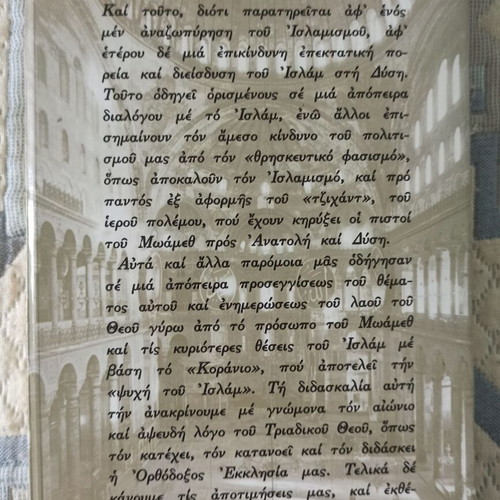 Καί τοῦτο, διότι παρατηρεῖται ἀφ' ἑνός
μέν ἀναζωπύρηση τοῦ Ἰσλαμισμοῦ, ἀφ'
ἑτέρου δέ μιά ἐπικίνδυνη ἐπεκτατική πο-
ρεία καί διείσδυση τοῦ Ἰσλάμ στή Δύση.
Τοῦτο ὁδηγεῖ ὁρισμένους σέ μιά ἀπόπειρα
διαλόγου μέ τό Ἰσλάμ, ἐνῶ ἄλλοι ἐπι-
σημαίνουν τόν ἄμεσο κίνδυνο τοῦ πολιτι-
σμοῦ μας ἀπό τόν «θρησκευτικό φασισμό»,
ὅπως ἀποκαλοῦν τόν Ἰσλαμισμό, καί πρό
παντός ἐξ ἀφορμῆς τοῦ «τζιχάντ», τοῦ
ἱεροῦ πολέμου, πού ἔχουν κηρύξει οἱ πιστοί
τοῦ Μωάμεθ πρός Ἀνατολή καί Δύση.
Αὐτά καί ἄλλα παρόμοια μᾶς ὁδήγησαν
σέ μιά ἀπόπειρα προσεγγίσεως τοῦ θέμα-
τος αὐτοῦ καί ἐνημερώσεως τοῦ λαοῦ τοῦ
Θεοῦ γύρω ἀπό τό πρόσωπο τοῦ Μωάμεθ
καί τίς κυριότερες θέσεις τοῦ Ἰσλάμ μέ
βάση τό «Κοράνιο», πού ἀποτελεῖ τήν
«ψυχή τοῦ Ἰσλάμ». Τή διδασκαλία αὐτή
τήν ἀνακρίνουμε μέ γνώμονα τόν αἰώνιο
καί ἀψευδή λόγο τοῦ Τριαδικοῦ Θεοῦ, ὅπως
τόν κατέχει, τόν κατανοεῖ καί τόν διδάσκει
ἡ Ὀρθόδοξος Ἐκκλησία μας. Τελικά δέ
κάνουμε τίς ἀποτιμήσεις μας, καί ἐκθέ-